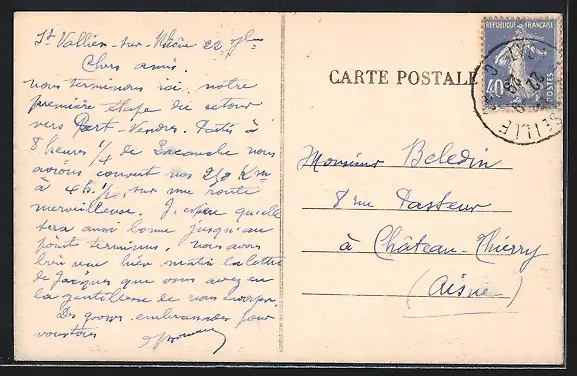 St Vallier-sur-Rhône 22 7bre
Chers amis.
nous terminons ici notre
première étape du retour
vers Port-Vendres. Partis à
8 heures 1/4 de nous
avions couvert nos 250 Km
à 4h 1/2, sur une route
merveilleuse. J'espère qu'elle
sera aussi bonne jusqu'au
point terminus. nous avons
bien reçu hier matin la lettre
de Jacques que vous avez eu
la gentillesse de nous envoyer.
Des grosses embrassades pour
vous tous
CARTE POSTALE
REPUBLIQUE FRANÇAISE
40c
POSTES
Monsieur Beledin
8 rue Pasteur
à Château-Thierry
(Aisne)